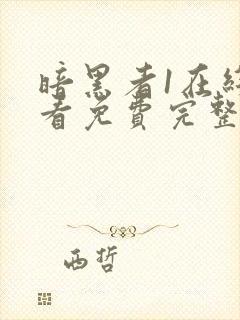 暗黑者1在
看免费完整
西哲